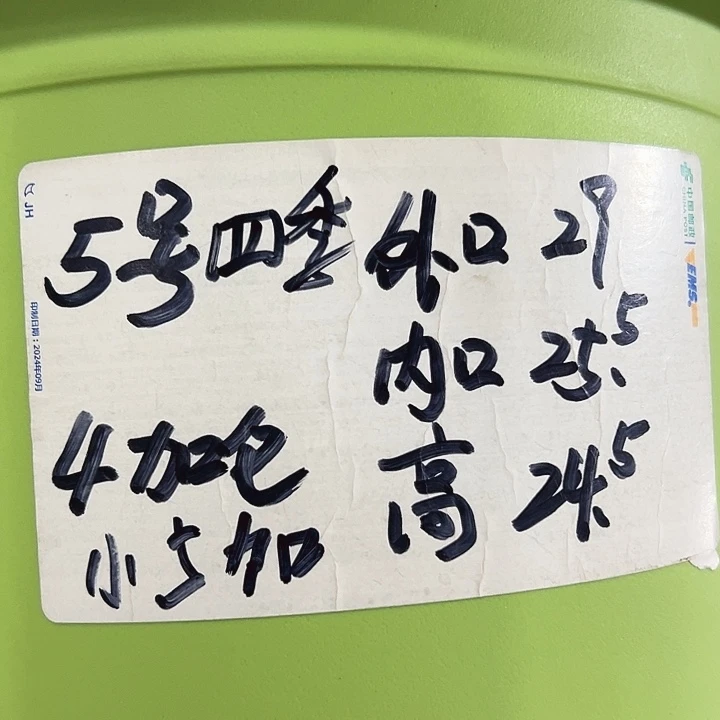 5号四季 外口 29
内口 25.5
4加仑 高 24.5
小5加
JH
印制日期：2024年09月
中国邮政
CHINA POST
EMS